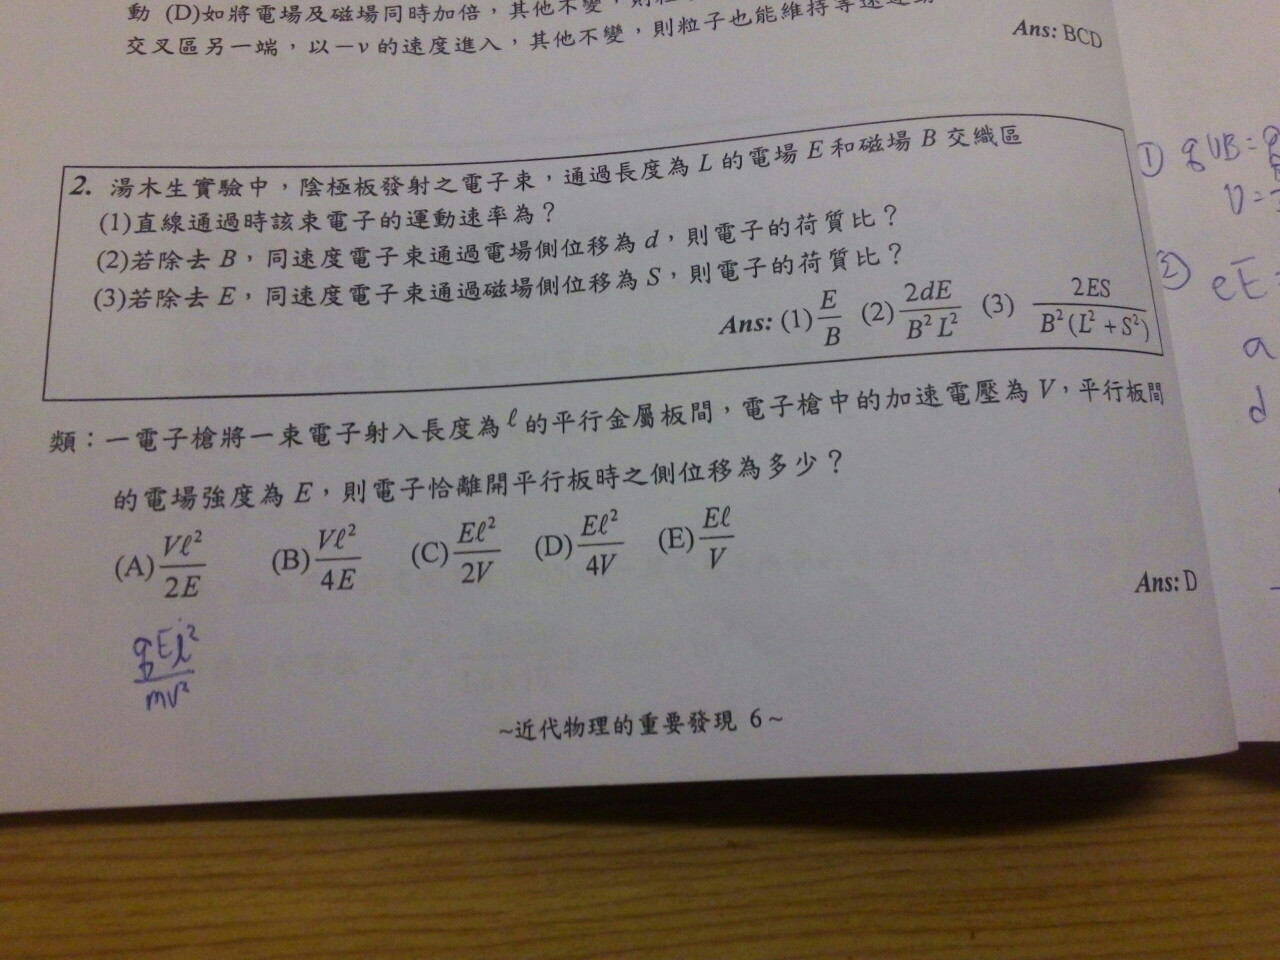 動 (D)如將電場及磁場同時加倍,其他不變,則粒
交叉區另一端,以-v的速度進入,其他不變,則粒子也能維持等速運動
Ans: BCD
2. 湯木生實驗中,陰極板發射之電子束,通過長度為 L 的電場 E 和磁場 B 交織區
(1)直線通過時該束電子的運動速率為?
(2)若除去 B,同速度電子束通過電場側位移為 d,則電子的荷質比?
(3)若除去 E,同速度電子束通過磁場側位移為 S,則電子的荷質比?
Ans: (1) E/B (2) 2dE/B²L² (3) 2ES/B²(L²+S²)
類:一電子槍將一束電子射入長度為 ℓ 的平行金屬板間,電子槍中的加速電壓為 V,平行板間
的電場強度為 E,則電子恰離開平行板時之側位移為多少?
(A) Vℓ²/2E (B) Vℓ²/4E (C) Eℓ²/2V (D) Eℓ²/4V (E) Eℓ/V
Ans: D
qEℓ²/mv²
~近代物理的重要發現 6~
① qVB=
V=
② eE
a
d